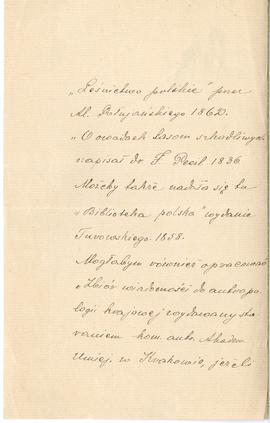 „Leśnictwo polskie" przez
Al. Połujańskiego 1862.
„O owadach lasom szkodliwych
napisał dr. F. 1836
Możeby także nadała się tu
„Biblioteka polska" wydanie
Turowskiego. 1858.
Mogłabym również opracować
„Zbiór wiadomości do antropo-
logii krajowej wydawany sta
raniem kom. antr. Akadem
Umiej. w Krakowie, jeżeli